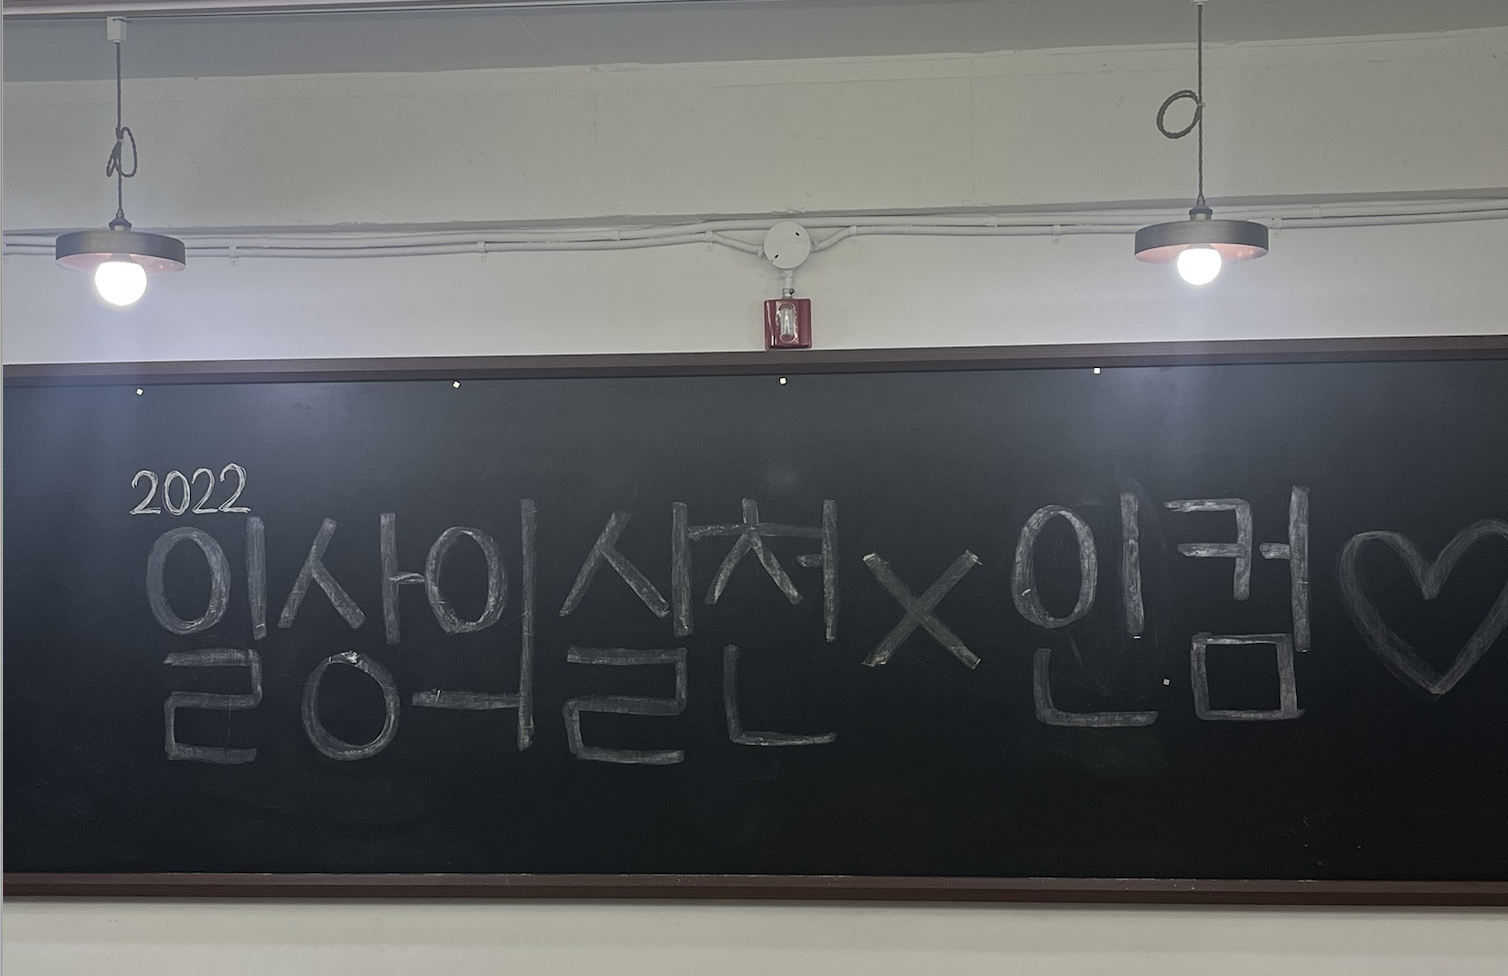 2022
일상의실천×인컴♡